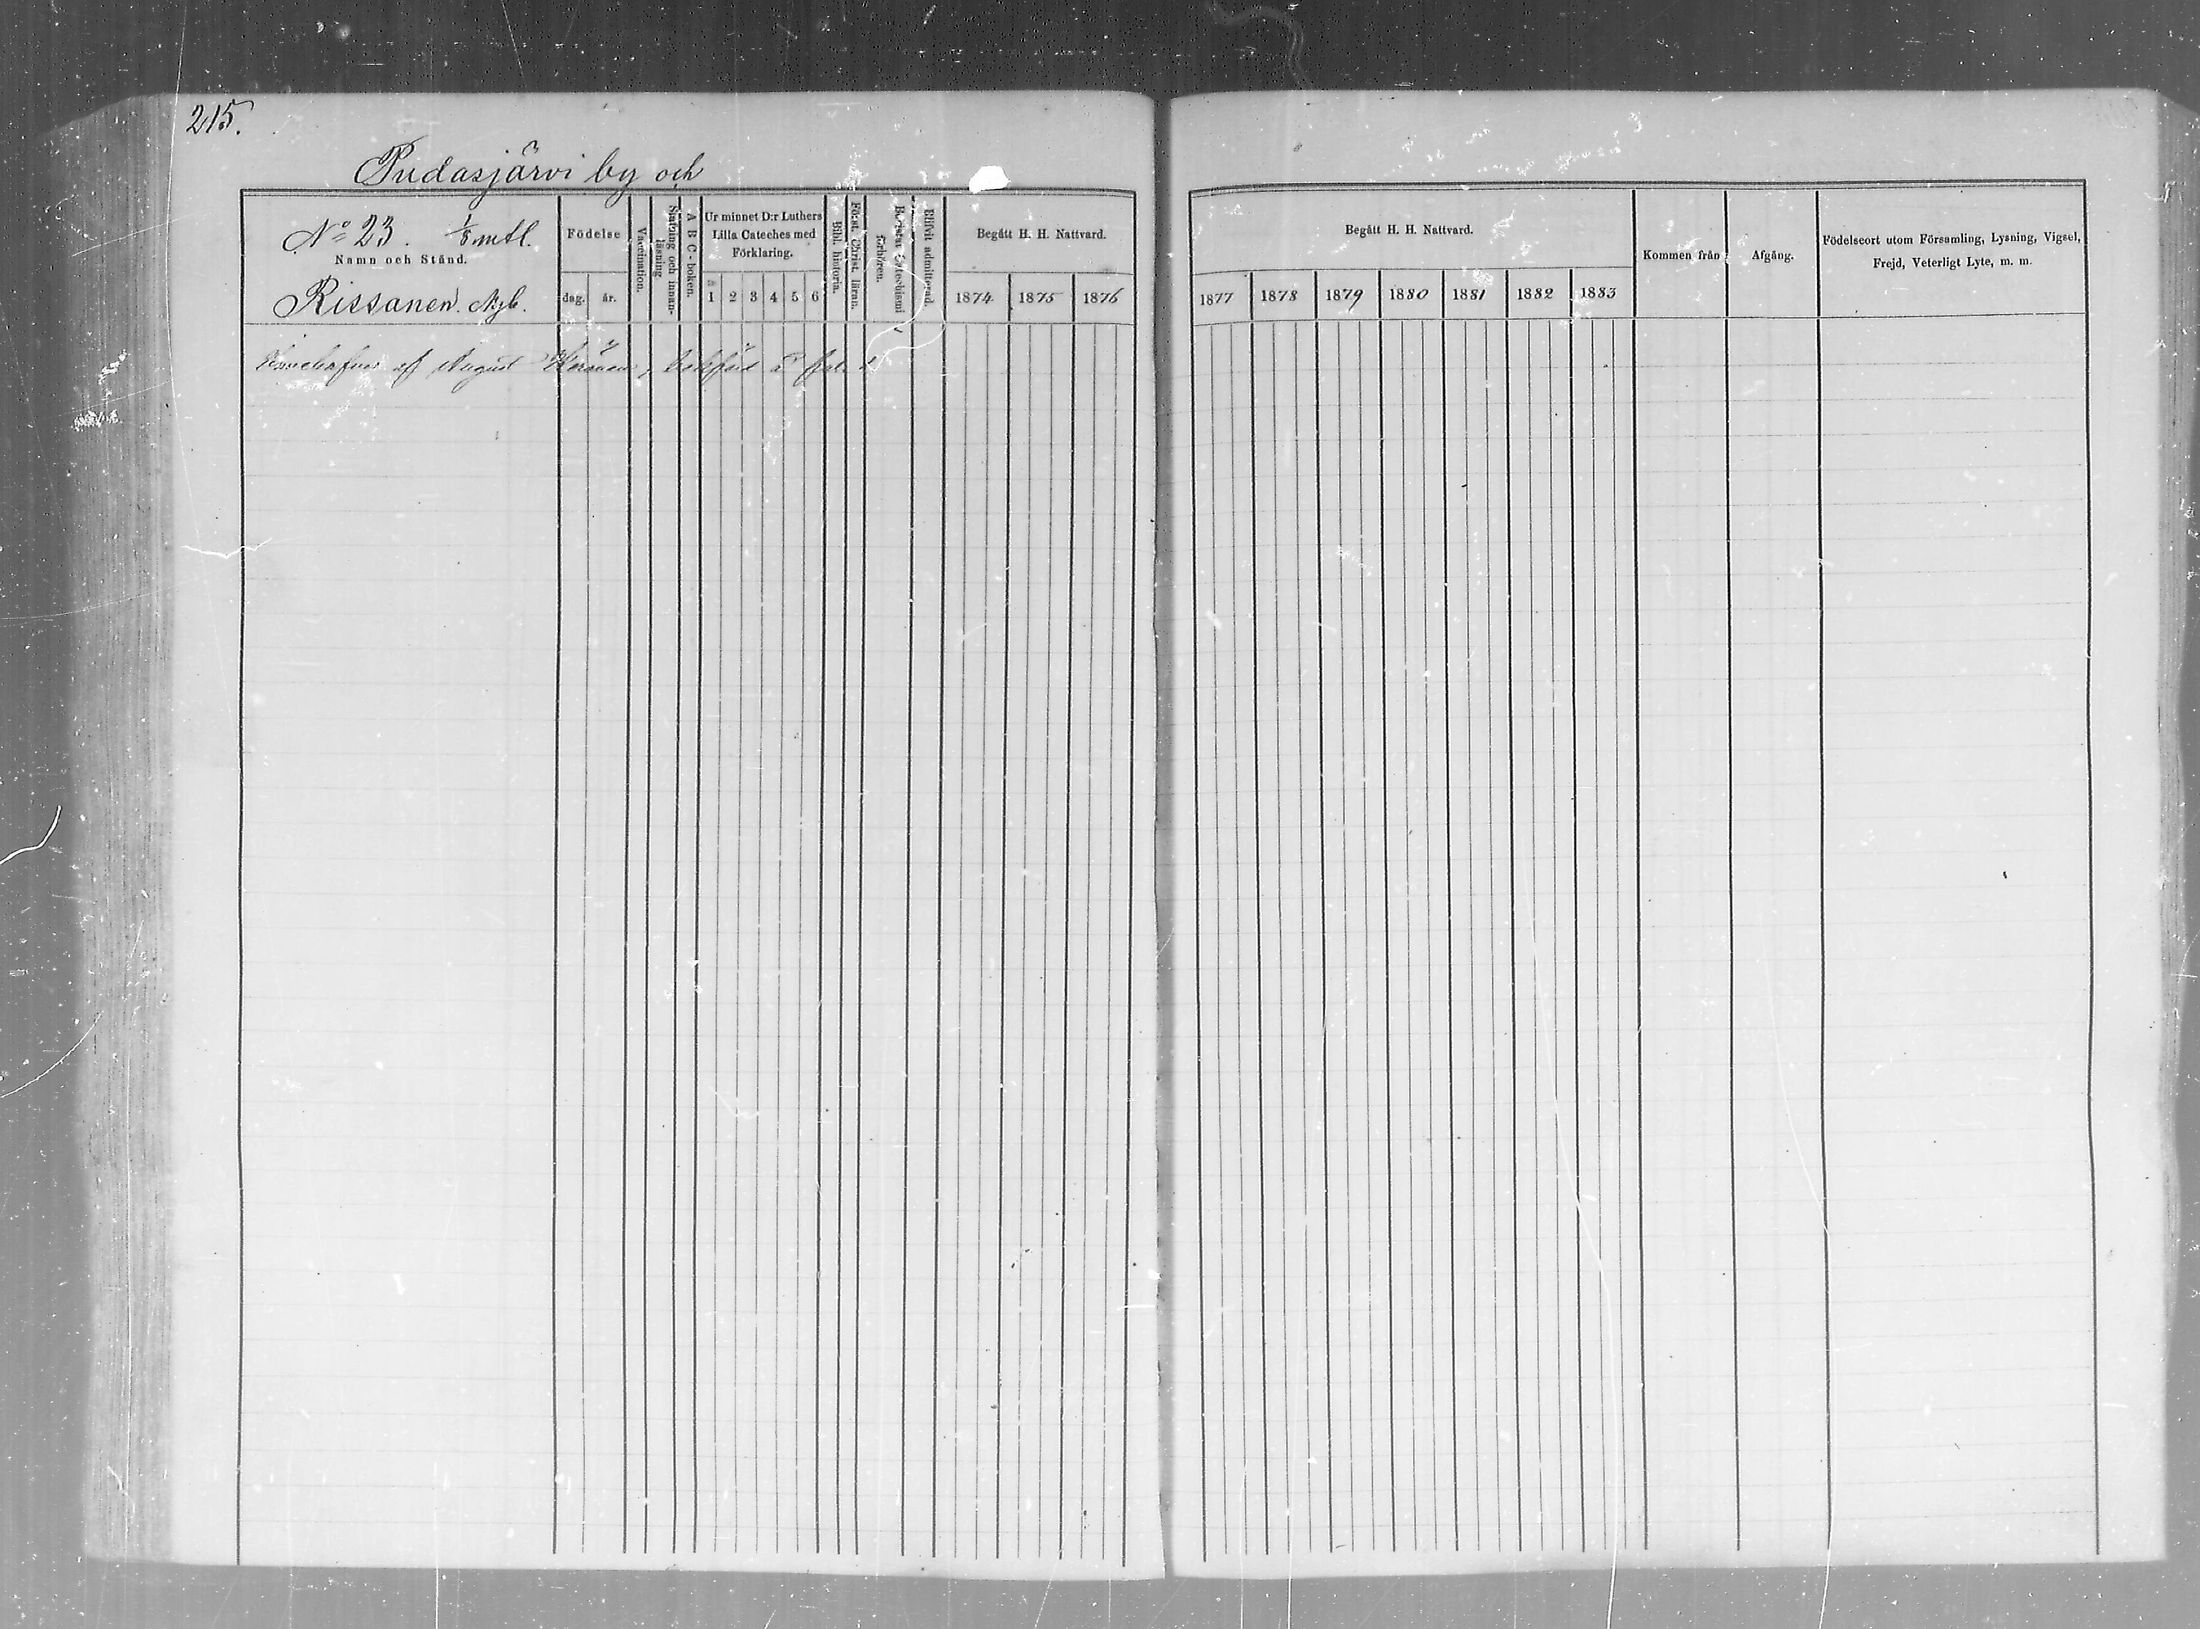 215.
Pudasjärvi by och
No 23. 1/8 mtl.
Namn och Stånd.
Rissanen. Nyb.
Födelse
dag.
år.
Vaccination.
Stafning och innan-
läsning.
A B C-boken.
Ur minnet D:r Luthers
Lilla Cateches med
Förklaring.
1 2 3 4 5 6
Bibl. historia.
Först. Christ. läran.
Bevistat Catechismi
förhören.
Blifvit admitterad.
Begått H. H. Nattvard.
1874 1875 1876
af August Keränen,
Begått H. H. Nattvard.
1877 1878 1879 1880 1881 1882 1883
Kommen från
Afgång.
Födelseort utom Församling, Lysning, Vigsel,
Frejd, Veterligt Lyte, m. m.